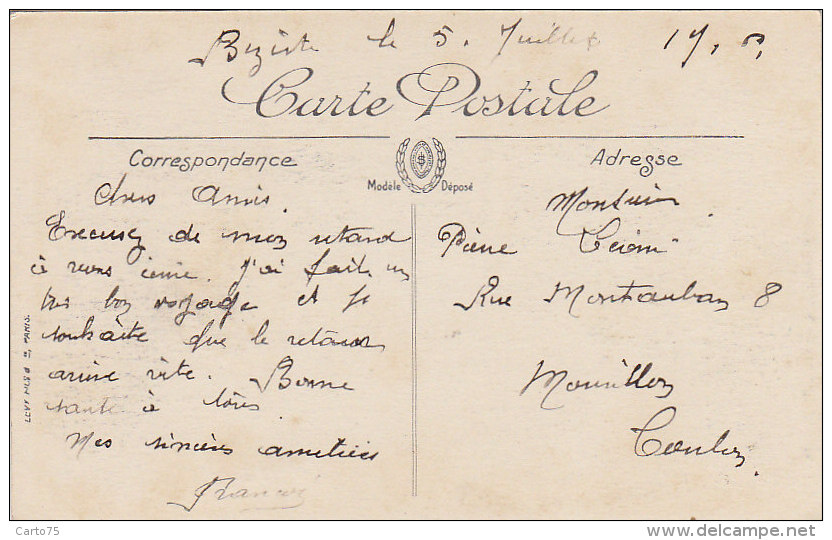 Bizerte le 5. Juillet 19
Carte Postale
Correspondance
Adresse
Modèle Déposé
Chers Amis.
Excusez de mon retard
à vous écrire. J'ai fait un
très bon voyage et je
souhaite que le retour
arrive vite. Bonne
santé à tous
Mes sincères amitiées
Francis
Monsieur
Pierre
Rue Montauban 8
Mourillon
Toulon.
LEVY FILS & Cie PARIS.
Carto75
www.delcampe.net